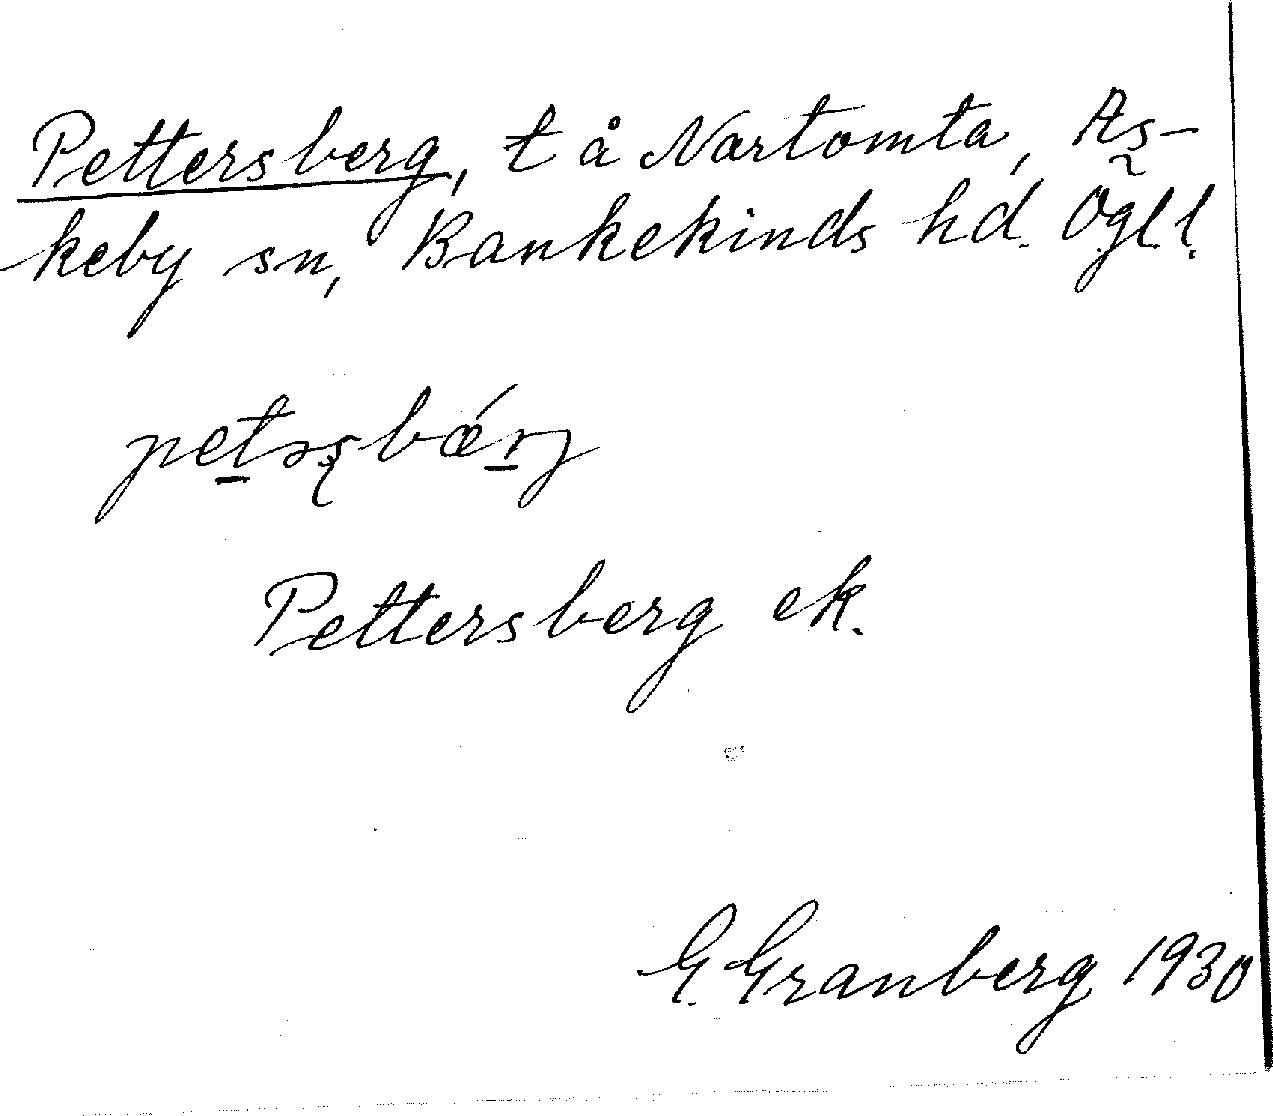 Pettersberg, t å Nartomta, As-
keby sn, Bankekinds hd. Ögl.l.
petərsbǽrj
Pettersberg ek.
G. Granberg 1930